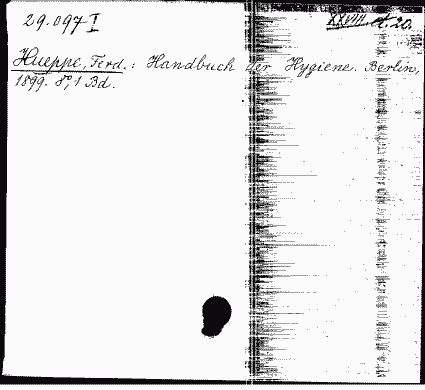 29.097 I
XXVIII. d. 20.
Hueppe, Ferd.: Handbuch der Hygiene. Berlin,
1899. 8°, 1 Bd.